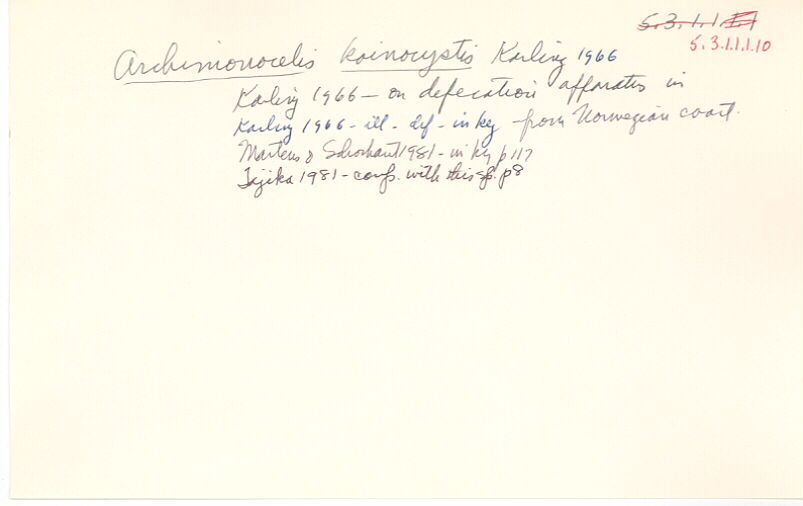 5.3.1.1.
5.3.1.1.1.10
Archimonocelis koinocystis Karling 1966
Karling 1966 - on defecation apparatus in
Karling 1966 - ill - def - in key - from Norwegian coast.
Martens & Schockaert 1981 - in key p 117
Tajika 1981 - comp. with this sp. p8